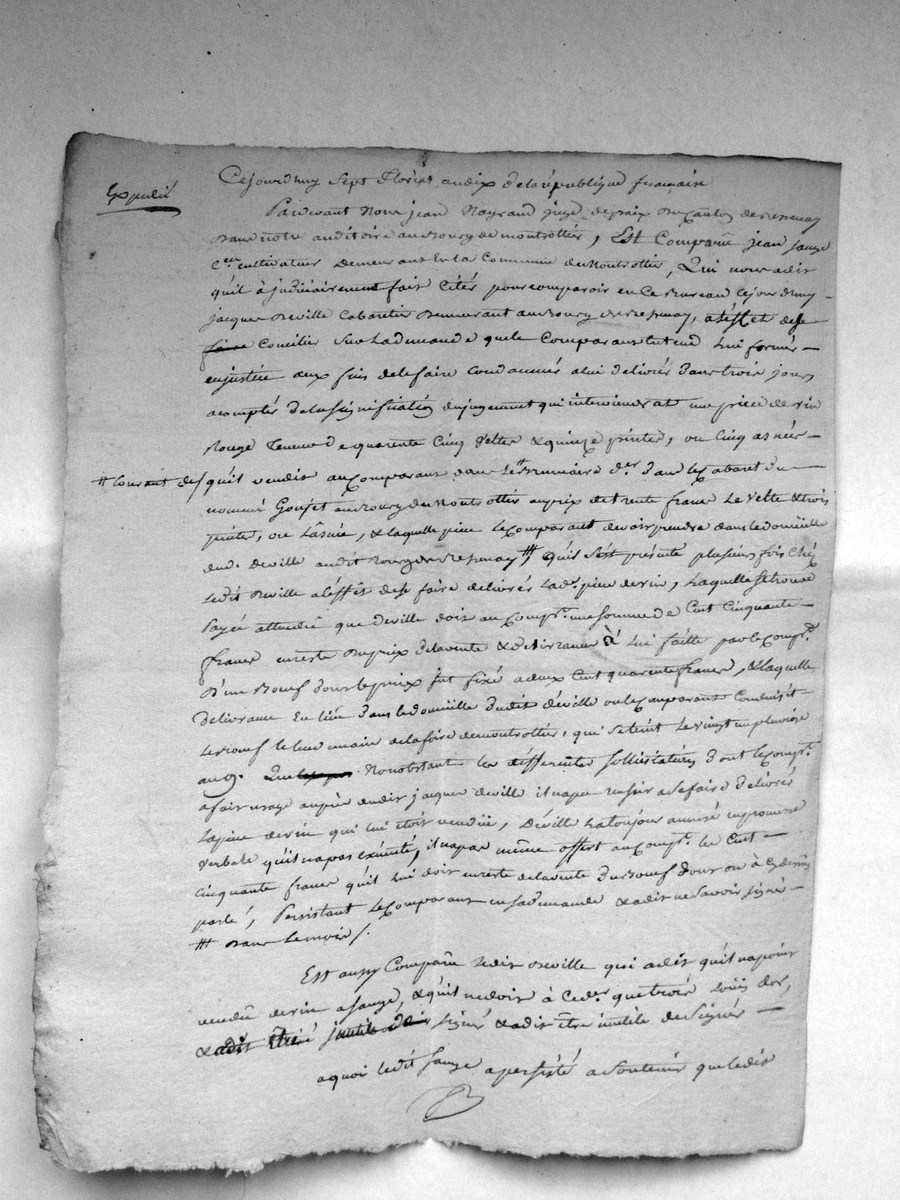 Expedié
Cejourdhuy Sept floreal an dix de la republique francaise
Pardevant Nous jean Raynaud juge de paix du Canton de
dans notre auditoire au Bourg de montrottier, Est Comparu jean Sauze
Cen. cultivateur demeurant En la Commune de Montrottier, Qui nous a dit
quil à judiciairement fait citér pour comparoir en ce Bureau cejourdhuy
jacques Deville Cabaretier demeurant au Bourg de, a leffet de se
faire Concilier Sur la demande que le Comparant entend lui formér
en justice aux fins de le faire condamnér a lui delivrér dans trois jours
a compter de la signification du jugement qui interviendrat une piece de vin
Rouge Tenue de quarente Cinq velte & quinze pintes, ou Cinq asnées
# Courant des/ quil vendit au Comparant dans le # Brumaire dr. dans le Cabaret du
nommé Goujet au Bourg de Montrottier au prix de trente francs Le velte & trois
pintes, ou Lasnée, & laquelle piece le Comparant devoit prendre dans le domicille
dud. Deville audit Bourg de ###, quil sest présenté plusieurs fois chéz
Ledit Deville a leffet de se faire delivrér Lade. piece de vin, Laquelle se trouve
payée attendu que deville doit au Compt. une somme de Cent Cinquante
francs en reste du prix de la vente & delivrance à Lui faitte par le Compt.
d'un Boeuf dont le prix fut fixé a deux Cent quarente francs, & laquelle
delivrance En lieu dans le domicille dudit déville ou le Comparant Conduisit
Le Boeuf le lendemain de la foire de montrottier, qui se tint le vingt un pluviose
an 9. Que Nonobstant les differentes sollicitations dont le Compt.
a fait usage auprès dudit jacques deville il na pu reussir a se faire delivrér
la piece de vin qui lui etoit vendue, Déville la toujour amusé en promesse
verbale quil na pas éxécuté, il na pas même offert au Compt. le Cent
cinquante francs quil lui doit en reste de la vente du Boeuf dont on à cy devant
parlé, Persistant le Comparant en sa demande & a dit ne Savoir signér
### dans le mois /.
Est aussy Comparu Ledit Deville qui a dit quil na point
vendu de vin a Sauze, & quil ne doit à Ce der. que trois Louis dor,
& a dit être inutile de signé & a dit être inutile de Signér
a quoi ledit Sauze a persisté a Soutenir que ledit